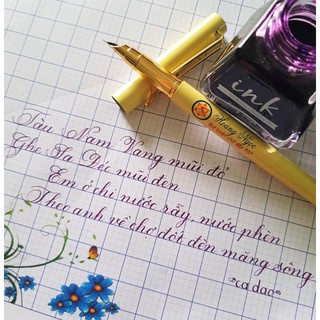 ink
Hoàng Ngọc
Tàu Nam Vang mũi đỏ
Ghe Sa Đéc mũi đen
Em ở chi nước rẫy, nước phèn
Theo anh về chợ đốt đèn măng sông
"ca dao"